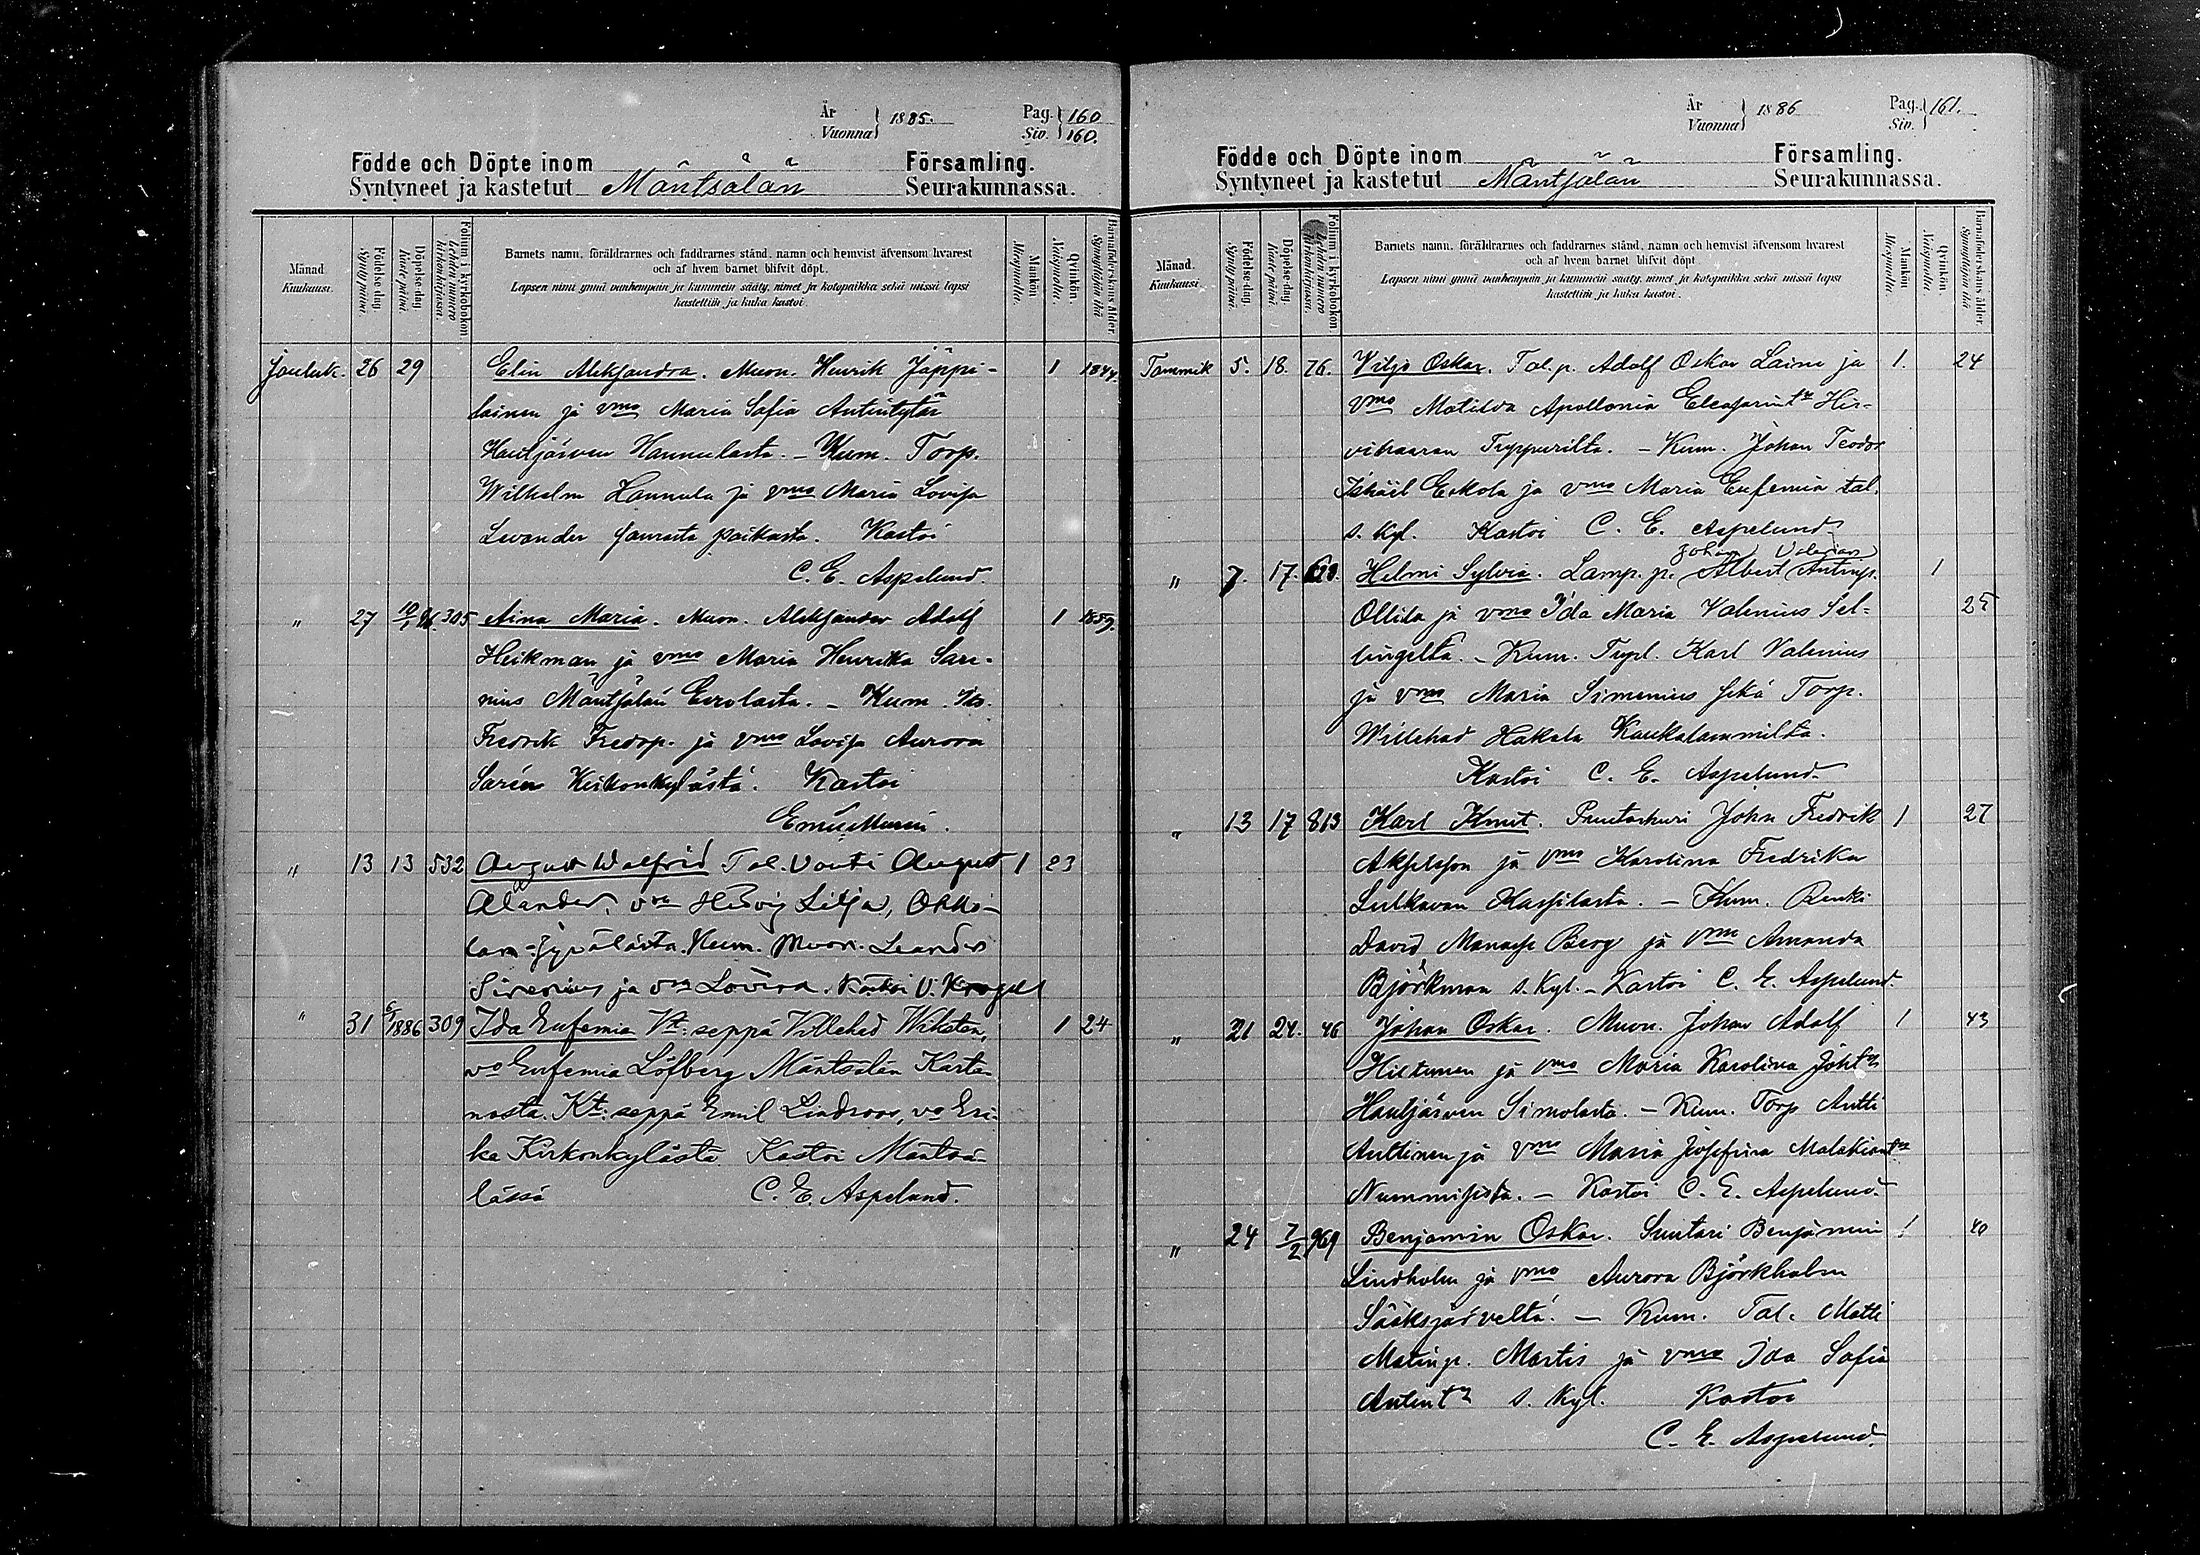 År
Vuonna } 1885.
Pag. } 160
Siv. } 160.
Födde och Döpte inom
Församling.
Syntyneet ja kastetut Mäntsälän Seurakunnassa.
Månad. Kuukausi.
Födelse-dag. Syntypäivä.
Döpelse-dag. Kastepäivä.
Folium i kyrkobokon. Lehden numero kirkonkirjassa.
Barnets namn, föräldrarnes och faddrarnes stånd, namn och hemvist äfvensom hvarest
och af hvem barnet blifvit döpt.
Lapsen nimi ynnä vanhempain ja kummein sääty, nimet ja kotopaikka sekä missä lapsi
kastettiin ja kuka kastoi.
Mankön. Miespuolia.
Qvinkön. Naispuolia.
Barnaföderskans ålder. Synnyttäjän ikä
Jouluk. 26 29 Elin Aleksandra. Muon. Henrik Jäppi- 1 1844.
läinen ja vmo Maria Sofia Antintytär
Hautjärven Hannulasta. - Kum. Torp.
Wilhelm Hannula ja vmo Maria Lovisa
Levander samasta paikasta. Kastoi
C. E. Aspelund.
" 27 10/1 86. 305 Aina Maria. Muon. Aleksander Adolf 1 1859.
Heikman ja vmo Maria Henrika Sare-
nius Mäntsälän Eerolasta. - Kum. Its.
Fredrik Fredrp. ja vmo Lovisa Aurora
Sarén Kirkonkylästä. Kastoi
" 13 13 532 August Walfrid Tal. Vouti August 1 23
Alander, vmo Hedvig Lilja, Ohko-
lan-Jypälästä. Kum. Muon. Leander
Sirenius ja vmo Lovisa. Kastoi V. Krogell
" 31 6/1 1886 309 Ida Eufemia Kt. seppä Villehad Wiksten, 1 24
vo Eufemia Löfberg Mäntsälän Karta-
nosta. Kt. seppä Emil Lindroos, vo Eri-
ka Kirkonkylästä. Kastoi Mäntsä-
lässä C. E. Aspelund.
År
Vuonna } 1886
Pag. } 161.
Siv.
Födde och Döpte inom
Församling.
Syntyneet ja kastetut Mäntsälän Seurakunnassa.
Månad. Kuukausi.
Födelse-dag. Syntypäivä.
Döpelse-dag. Kastepäivä.
Folium i kyrkobokon. Lehden numero kirkonkirjassa.
Barnets namn, föräldrarnes och faddrarnes stånd, namn och hemvist äfvensom hvarest
och af hvem barnet blifvit döpt.
Lapsen nimi ynnä vanhempain ja kummein sääty, nimet ja kotopaikka sekä missä lapsi
kastettiin ja kuka kastoi.
Mankön. Miespuolia.
Qvinkön. Naispuolia.
Barnaföderskans ålder. Synnyttäjän ikä
Tammik 5. 18. 76. Wiljo Oskar. Tal. p. Adolf Oskar Laine ja 1. 24
vmo Matilda Apollonia Eleasarint. Hir-
vihaaran Trppurilta. - Kum. Johan Teodor
Eskola ja vmo Maria Eufemia tal.
s. kyl. Kastoi C. E. Aspelund.
Johan Valerian
" 7. 17. Helmi Sylvia. Lamp. p. Albert Antinp. 1
Ollila ja vmo Ida Maria Valenius Sel- 25
lingeltä. - Kum. Trpl. Karl Valenius
ja vmo Maria Simenius sekä Torp.
Willehad Hakala Kaukalammilta.
Kastoi C. E. Aspelund.
" 13 17 813 Karl Knut. Puutarhuri John Fredrik 1 27
Akselsson ja vmo Karolina Fredrika
Sulkavan Kassilasta. - Kum. Renki
David Manasse Berg ja vmo Amanda
Björkman s. kyl. - Kastoi C. E. Aspelund.
" 21 24. 46 Johan Oskar. Muon. Johan Adolf 1 43
Hiltunen ja vmo Maria Karolina Joh.tr
Hautjärven Simolasta. - Kum. Torp Antti
Anttinen ja vmo Maria Josefina Malakiantr
Nummisista. - Kastoi C. E. Aspelund.
" 24 7/2 969 Benjamin Oskar. Suutari Benjamin 1 40
Lindholm ja vmo Aurora Björkholm
Sääksjärveltä. - Kum. Tal. Matti
Matinp. Martis ja vmo Ida Sofia
Antintr s. kyl. Kastoi
C. E. Aspelund.